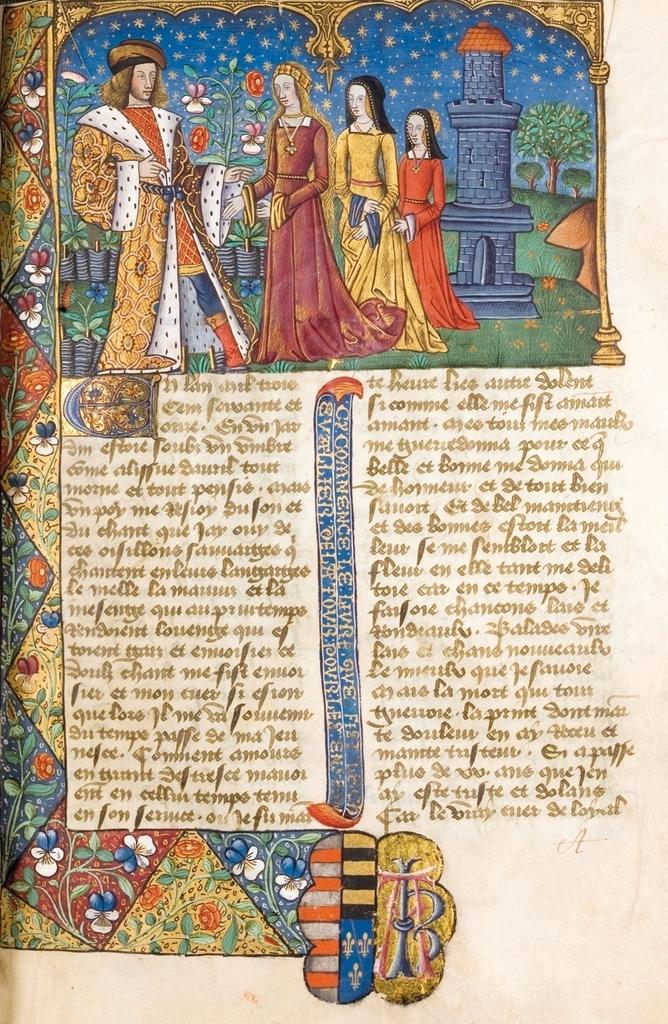 En lan mil trois
Cens soixante et
onze. En vn Jar
din estoie soubz vn vmbre
Come alissue dauril tout
morne et tout pensif. mais
vn poy me resioy du son et
du chant que Jay ouy de
ces oisillons sauuaiges q̄
chantent en leurs langaiges
le melle la mauuis et la
mesenge qui au printemps
Rendoient louenge qui es
toient gais et enuoisiez et
doulz chant me fist enuoi
sier et mon cuer si esioir
que lors Il me va souuenir
du temps passe de ma Jeu
nesce. Comment amours
en grant destresce mauoi
ent en cellui temps tenu
en son seruice. ou Je fu mai
CY COMMENCE LE LIVRE QVE FIST LE
CHEVALIER DE LA TOVR POVR
te heure lies autre dolent
si comme elle me fist amant
amant. mes tous mes maulx
me guerredonna pour ce q̄
belle et bonne me donna qui
de honneur et de tout bien
sauoit. Et de bel maintieng
et des bonnes estoit la meil
leur se me sembloit et la
fleur en elle tant me deli
toie car en ce temps. Je
faisoie chancons lais et
Rondeaulx. Balades vire
lais et chans nouueaulx
le mieulx que Je sauoie
Mais la mort qui tout
guerroie. la print dont mai
te douleur en ay Receu et
mainte tristeur. Si a passe
plus de xx. ans que Jen
ay este triste et dolans
Car le vray cuer de loyal
A